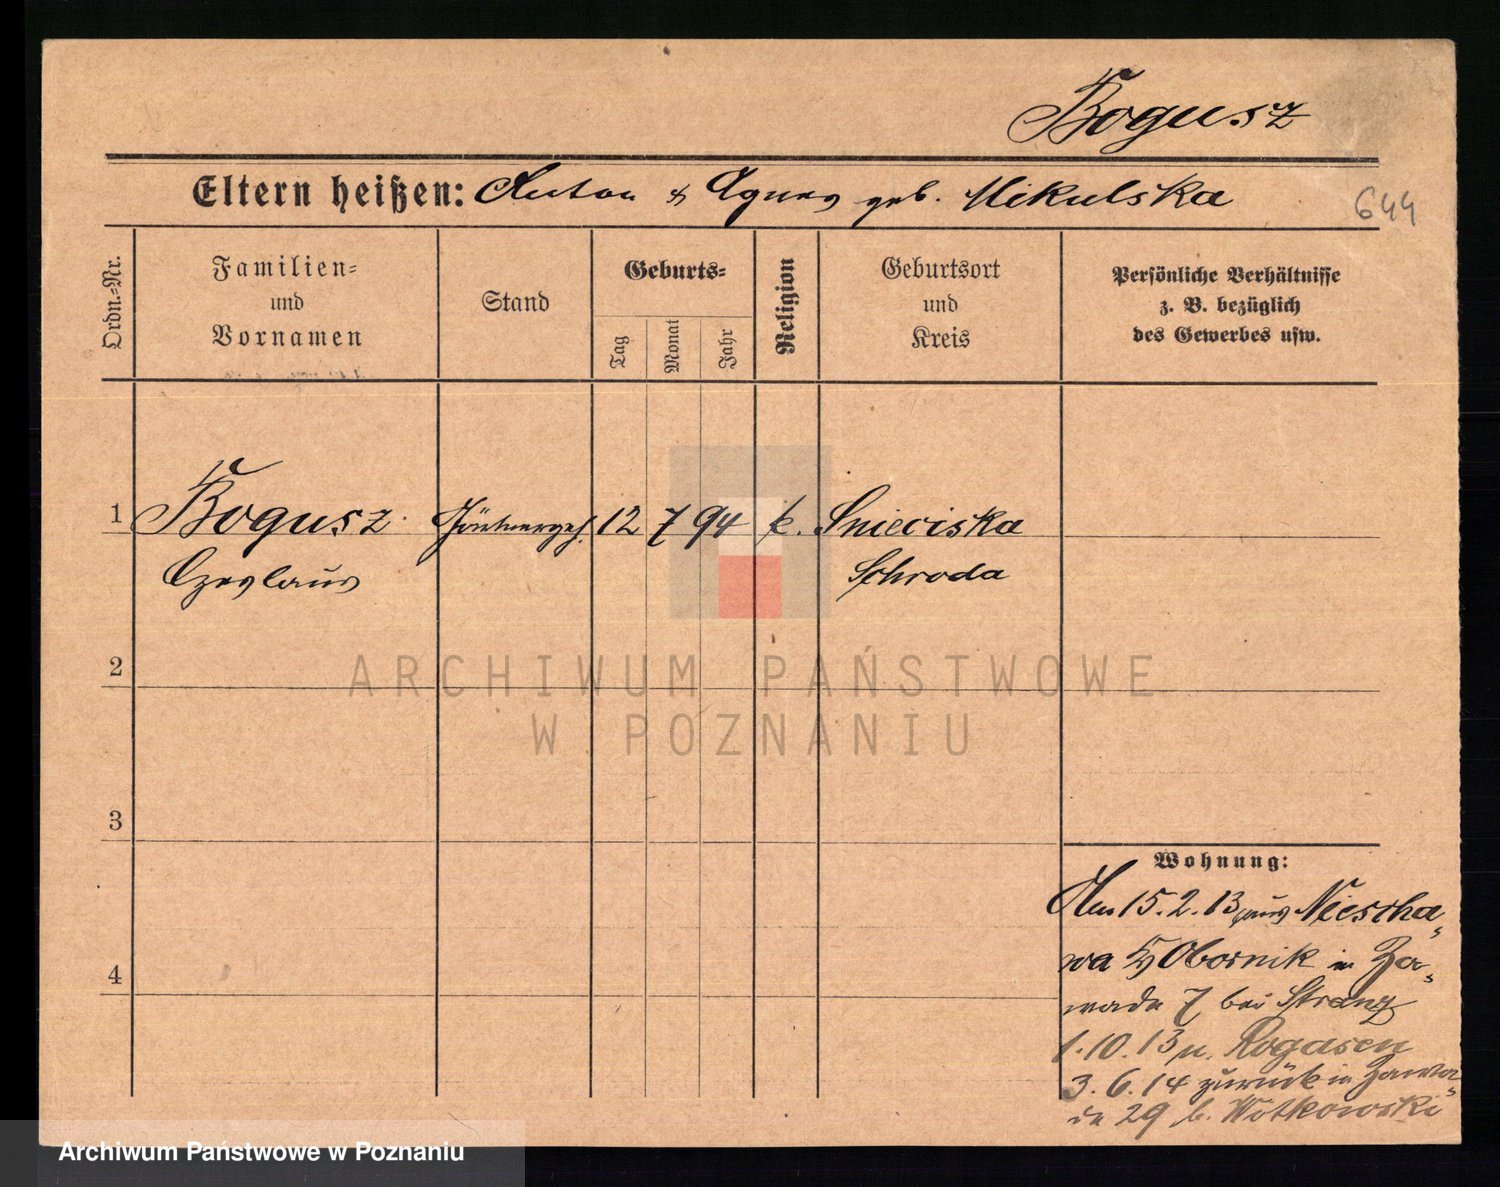 Bogusz
Eltern heißen: Anton & Agnes geb. Mikulska
644
Ordn.=Nr.
Familien=
und
Vornamen
Stand
Geburts=
Tag
Monat
Jahr
Religion
Geburtsort
und
Kreis
Persönliche Verhältnisse
z. B. bezüglich
des Gewerbes usw.
1 Bogusz Gärtnergeh. 12 7 94 k. Snieciska
Czeslaus Schroda
2
ARCHIWUM PAŃSTWOWE
W POZNANIU
3
Wohnung:
Am 15.2.13 aus Niescha=
4
wa Obornik in Za=
wade 7 bei Strang
1.10.13 n. Rogasen
3.6.14 zurück in Zawa=
de 29 b. Witkowski
Archiwum Państwowe w Poznaniu